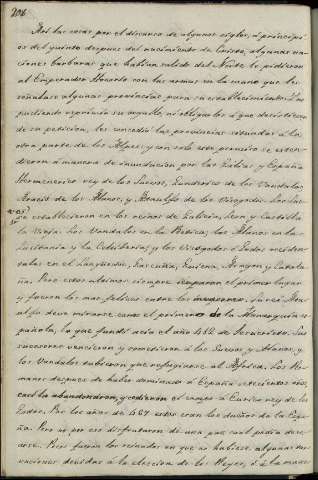 206
Así las cosas por el discurso de algunos siglos, á principi-
os del quinto despues del nacimiento de Cristo, algunas na-
ciones barbaras que habian salido del Norte le pidieron
al Emperador Honorio con las armas en la mano que les
señalase algunas provincias para su establecimiento. No
pudiendo reprimir su orgullo, ni obligarles á que desistiesen
de su peticion, les concedió las provincias situadas á la
otra parte de los Alpes; y con solo este permiso se esten-
dieron á manera de inundacion por las Galias y España
Hermenerico rey de los Suevos, Gunderico de los Vandalos,
de los Alanos, y Ataulfo de los Visogodos. Los
se establecieron en los reinos de Galicia, Leon y Castilla
la Vieja. Los Vandalos en la Betica; los Alanos en la
Lusitania y la Celtiberia; y los Visogodos ó Godos occiden-
tales en el Languedoc, Gascuña, Guiena, Aragon y Catalu-
ña. Pero estos ultimos siempre ocuparon el primer lugar
y fueron los mas felices entre los
debe mirarse como el primero de la Monarquia es-
pañola, la que fundó acia el año 412 de Jesucristo. Sus
sucesores vencieron y sometieron á los Suevos y Alanos, y
los Vandalos tubieron que refugiarse al Africa. Los Ro-
manos despues de haber dominado á España setecientos años,
casi la abandonaron, y cedieron el campo á Eurico rey de los
Godos. Por los años de 467 estos eran los dueños de la Espa-
ña. Pero no por eso disfrutaron de una paz cual podia dese-
arse. Pocos fueron los reinados en que no hubiese algunas
debidas á la eleccion de los Reyes, ó á la